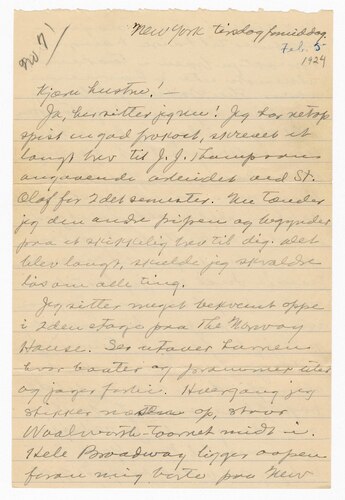 no 7
New York tirsdag formiddag.
Feb. 5
1924
Kjære hustru! —
Ja, her sitter jeg nu! Jeg har netop
spist en god frokost, skrevet et
langt brev til J. J. Thompson
angaaende arbeidet ved St.
Olaf for 2det semester. Nu tænder
jeg den andre pipen og begynder
paa et skikkelig brev til dig. Det
blev langt, skulde jeg skravle
løs om alle ting.
Jeg sitter meget bekvemt oppe
i 2den etage paa The Norway
House. Ser utover havnen
hvor baater og prammer siter
og jager forbi. Hvergang jeg
stikker næsen op, staar
Woolworth taarnet midt i.
Hele Broadway ligger aapen
foran mig borte paa New